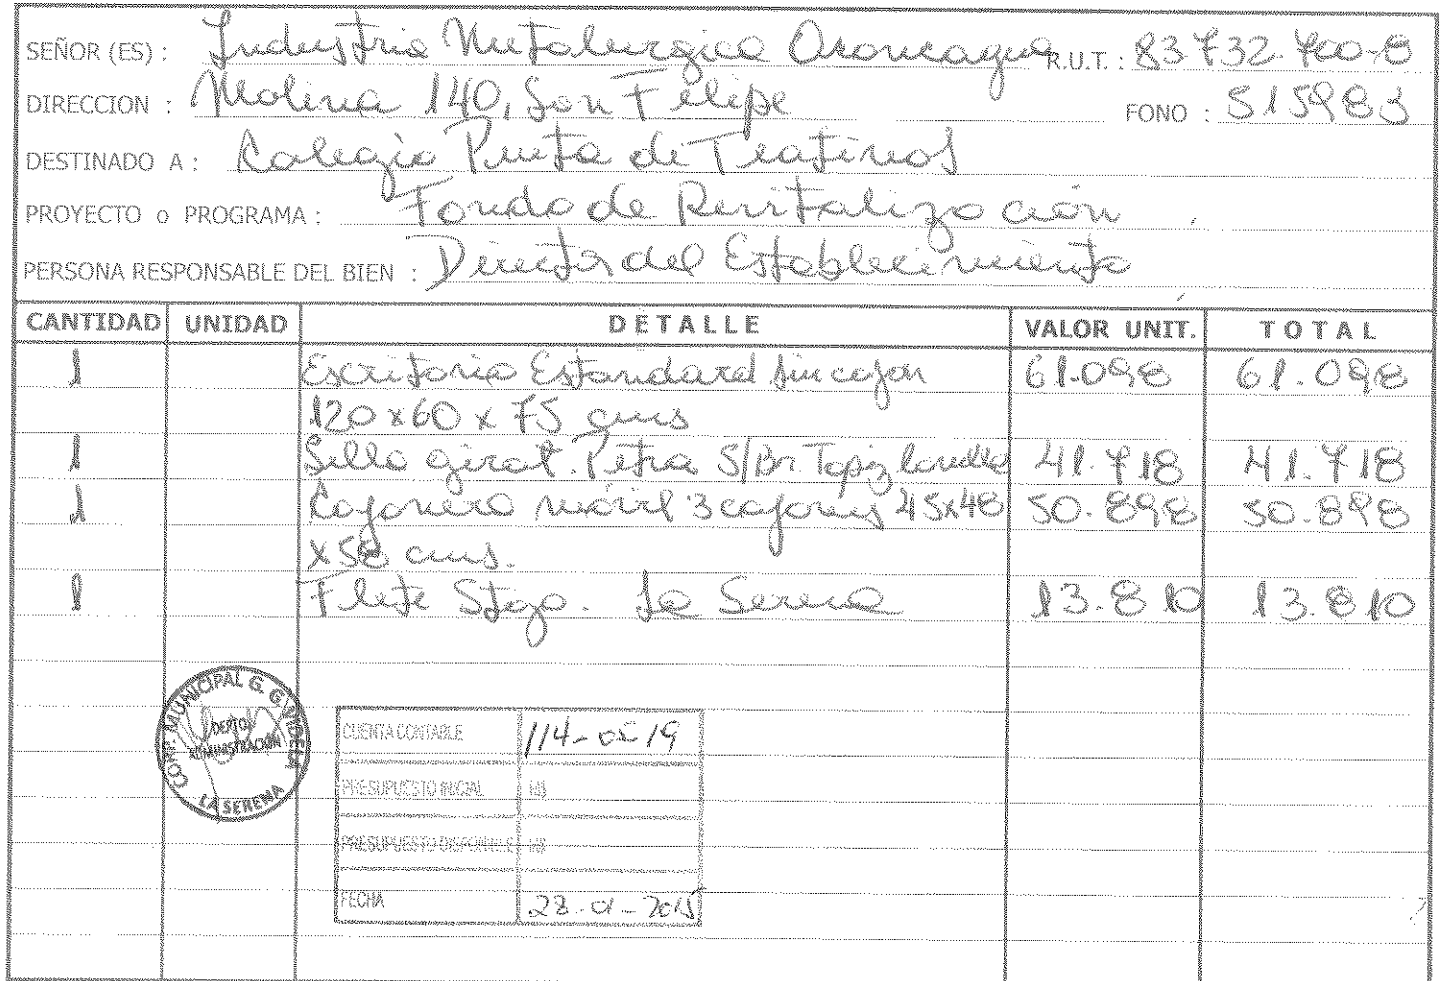 SEÑOR (ES) : Industria Metalurgica Aconcagua R.U.T. : 83.732.700-8
DIRECCION : Molina 140, San Felipe FONO : 515983
DESTINADO A : Colegio Punta de Teatinos
PROYECTO o PROGRAMA : Fondo de Revitalización
PERSONA RESPONSABLE DEL BIEN : Director del Establecimiento
CANTIDAD UNIDAD DETALLE VALOR UNIT. TOTAL
1 Escritorio Estandard sin cajon 61.098 61.098
120 x 60 x 75 cms
1 Silla girat. Petra S/Br. Tapiz 41.718 41.718
1 Cajonera móvil 3 cajones 45x48 50.898 50.898
x58 cms.
1 Flete Stgo. La Serena 13.810 13.810
CORP. MUNICIPAL G. G. VIDELA
DEPTO.
ADMINISTRACION
LA SERENA
CUENTA CONTABLE 114-05-19
PRESUPUESTO INICIAL M$
PRESUPUESTO DISPONIBLE M$
FECHA 28-01-2015